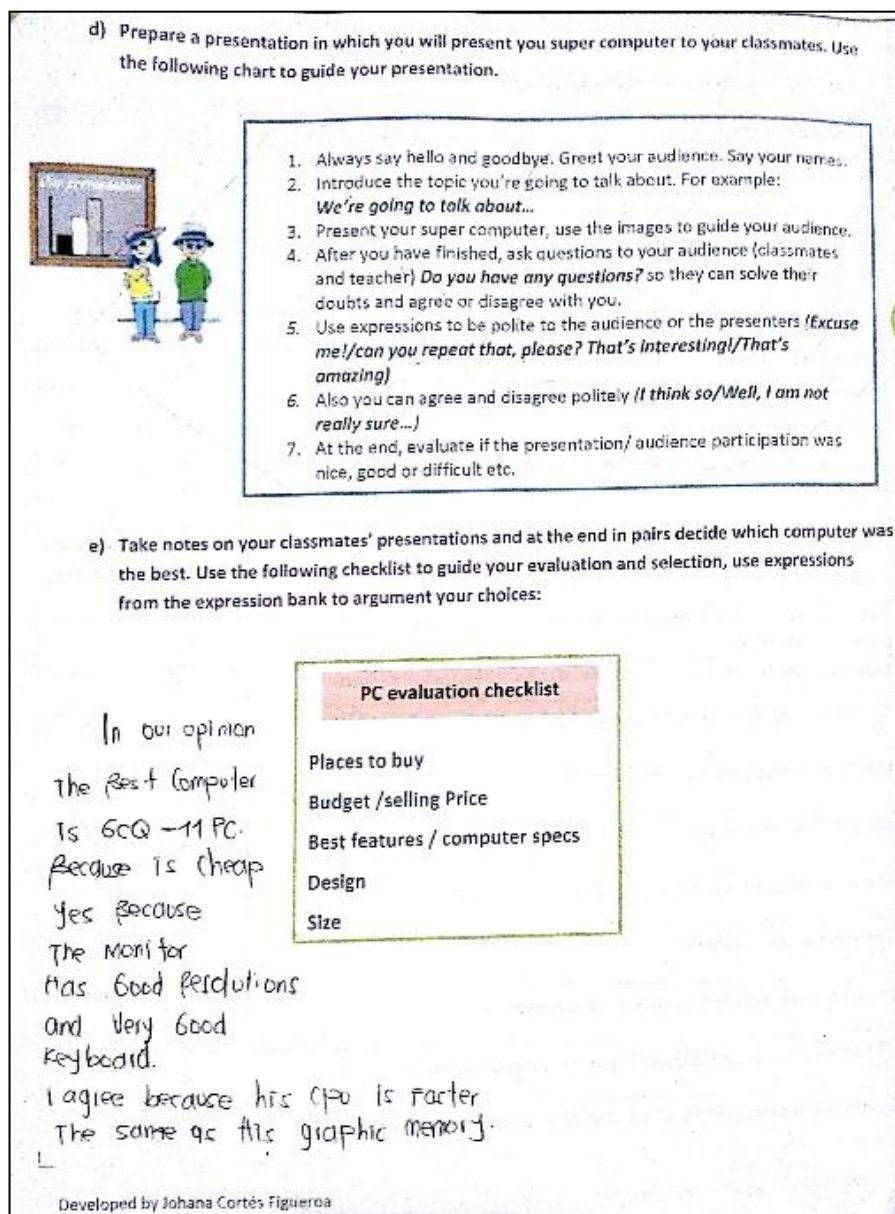 d) Prepare a presentation in which you will present you super computer to your classmates. Use
the following chart to guide your presentation.
1. Always say hello and goodbye. Greet your audience. Say your names.
2. Introduce the topic you're going to talk about. For example:
We're going to talk about...
3. Present your super computer, use the images to guide your audience.
4. After you have finished, ask questions to your audience (classmates
and teacher) Do you have any questions? so they can solve their
doubts and agree or disagree with you.
5. Use expressions to be polite to the audience or the presenters (Excuse
me!/can you repeat that, please? That's interesting!/That's
amazing)
6. Also you can agree and disagree politely (I think so/Well, I am not
really sure...)
7. At the end, evaluate if the presentation/ audience participation was
nice, good or difficult etc.
e) Take notes on your classmates' presentations and at the end in pairs decide which computer was
the best. Use the following checklist to guide your evaluation and selection, use expressions
from the expression bank to argument your choices:
PC evaluation checklist
Places to buy
Budget /selling Price
Best features / computer specs
Design
Size
In our opinion
The Best Computer
Is GCQ-11 PC.
Because is Cheap
Yes Because
The Monitor
Has Good Resolutions
and Very Good
Keyboard.
I agree because his CPU is Facter
The same as his graphic memory.
Developed by Johana Cortés Figueroa